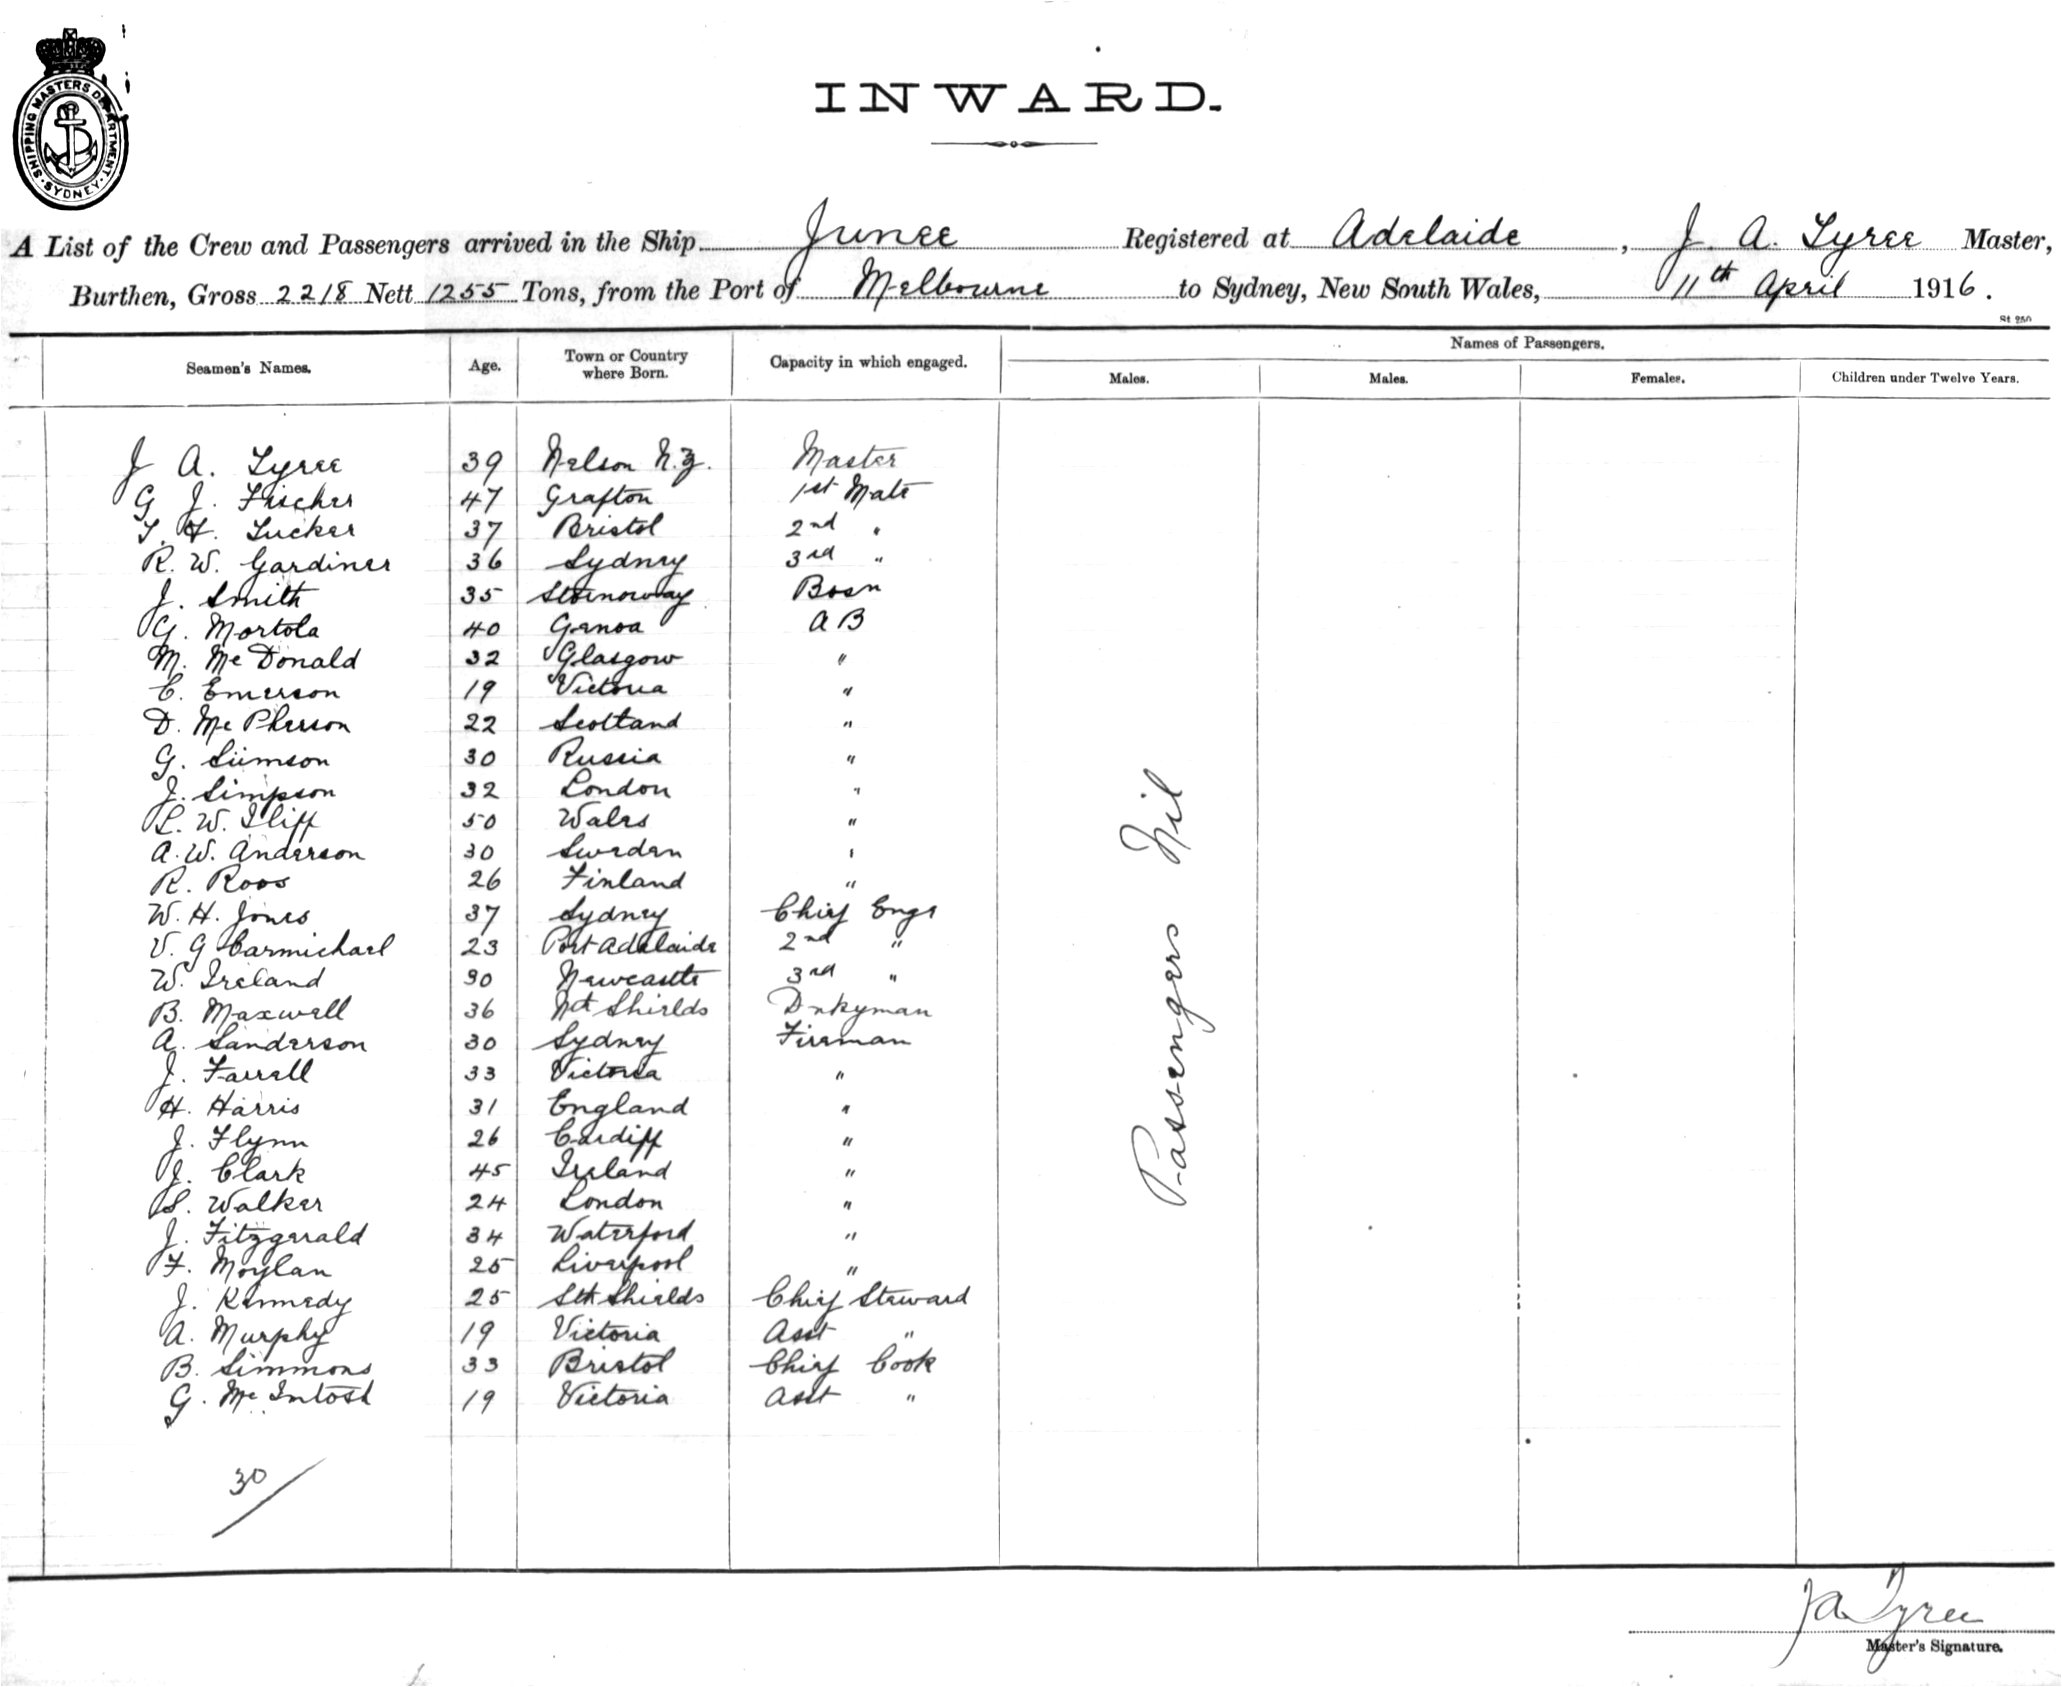 SHIPPING MASTERS DEPARTMENT. SYDNEY
INWARD.
A List of the Crew and Passengers arrived in the Ship Junee Registered at Adelaide, J. A. Tyree Master,
Burthen, Gross 2218 Nett 1255 Tons, from the Port of Melbourne to Sydney, New South Wales, 11th April 1916.
St 250
Names of Passengers.
Seamen's Names. Age. Town or Country where Born. Capacity in which engaged. Males. Males. Females. Children under Twelve Years.
J A. Tyree 39 Nelson N.Z. Master
G J. Fischer 47 Grafton 1st Mate
T. F. Tucker 37 Bristol 2nd "
R. W. Gardiner 36 Sydney 3rd "
J. Smith 35 Stornoway Bosn
G. Mortola 40 Genoa A B
M. McDonald 32 Glasgow "
C. Emerson 19 Victoria "
D. McPherson 22 Scotland "
G. Siimson 30 Russia "
J. Simpson 32 London "
L. W. Iliff 50 Wales "
A. W. Anderson 30 Sweden "
R. Roos 26 Finland "
W. H. Jones 37 Sydney Chief Engr
V. G Carmichael 23 Port Adelaide 2nd "
W. Ireland 30 Newcastle 3rd "
B. Maxwell 36 Nth Shields Dnkyman
A. Sanderson 30 Sydney Fireman
J. Farrell 33 Victoria "
H. Harris 31 England "
J. Flynn 26 Cardiff "
J. Clark 45 Ireland "
S. Walker 24 London "
J. Fitzgerald 34 Waterford "
F. Moylan 25 Liverpool "
J. Kennedy 25 Sth Shields Chief Steward
A. Murphy 19 Victoria Asst "
B. Simmons 33 Bristol Chief Cook
G. McIntosh 19 Victoria Asst "
30
Passengers Nil
J A Tyree
Master's Signature.